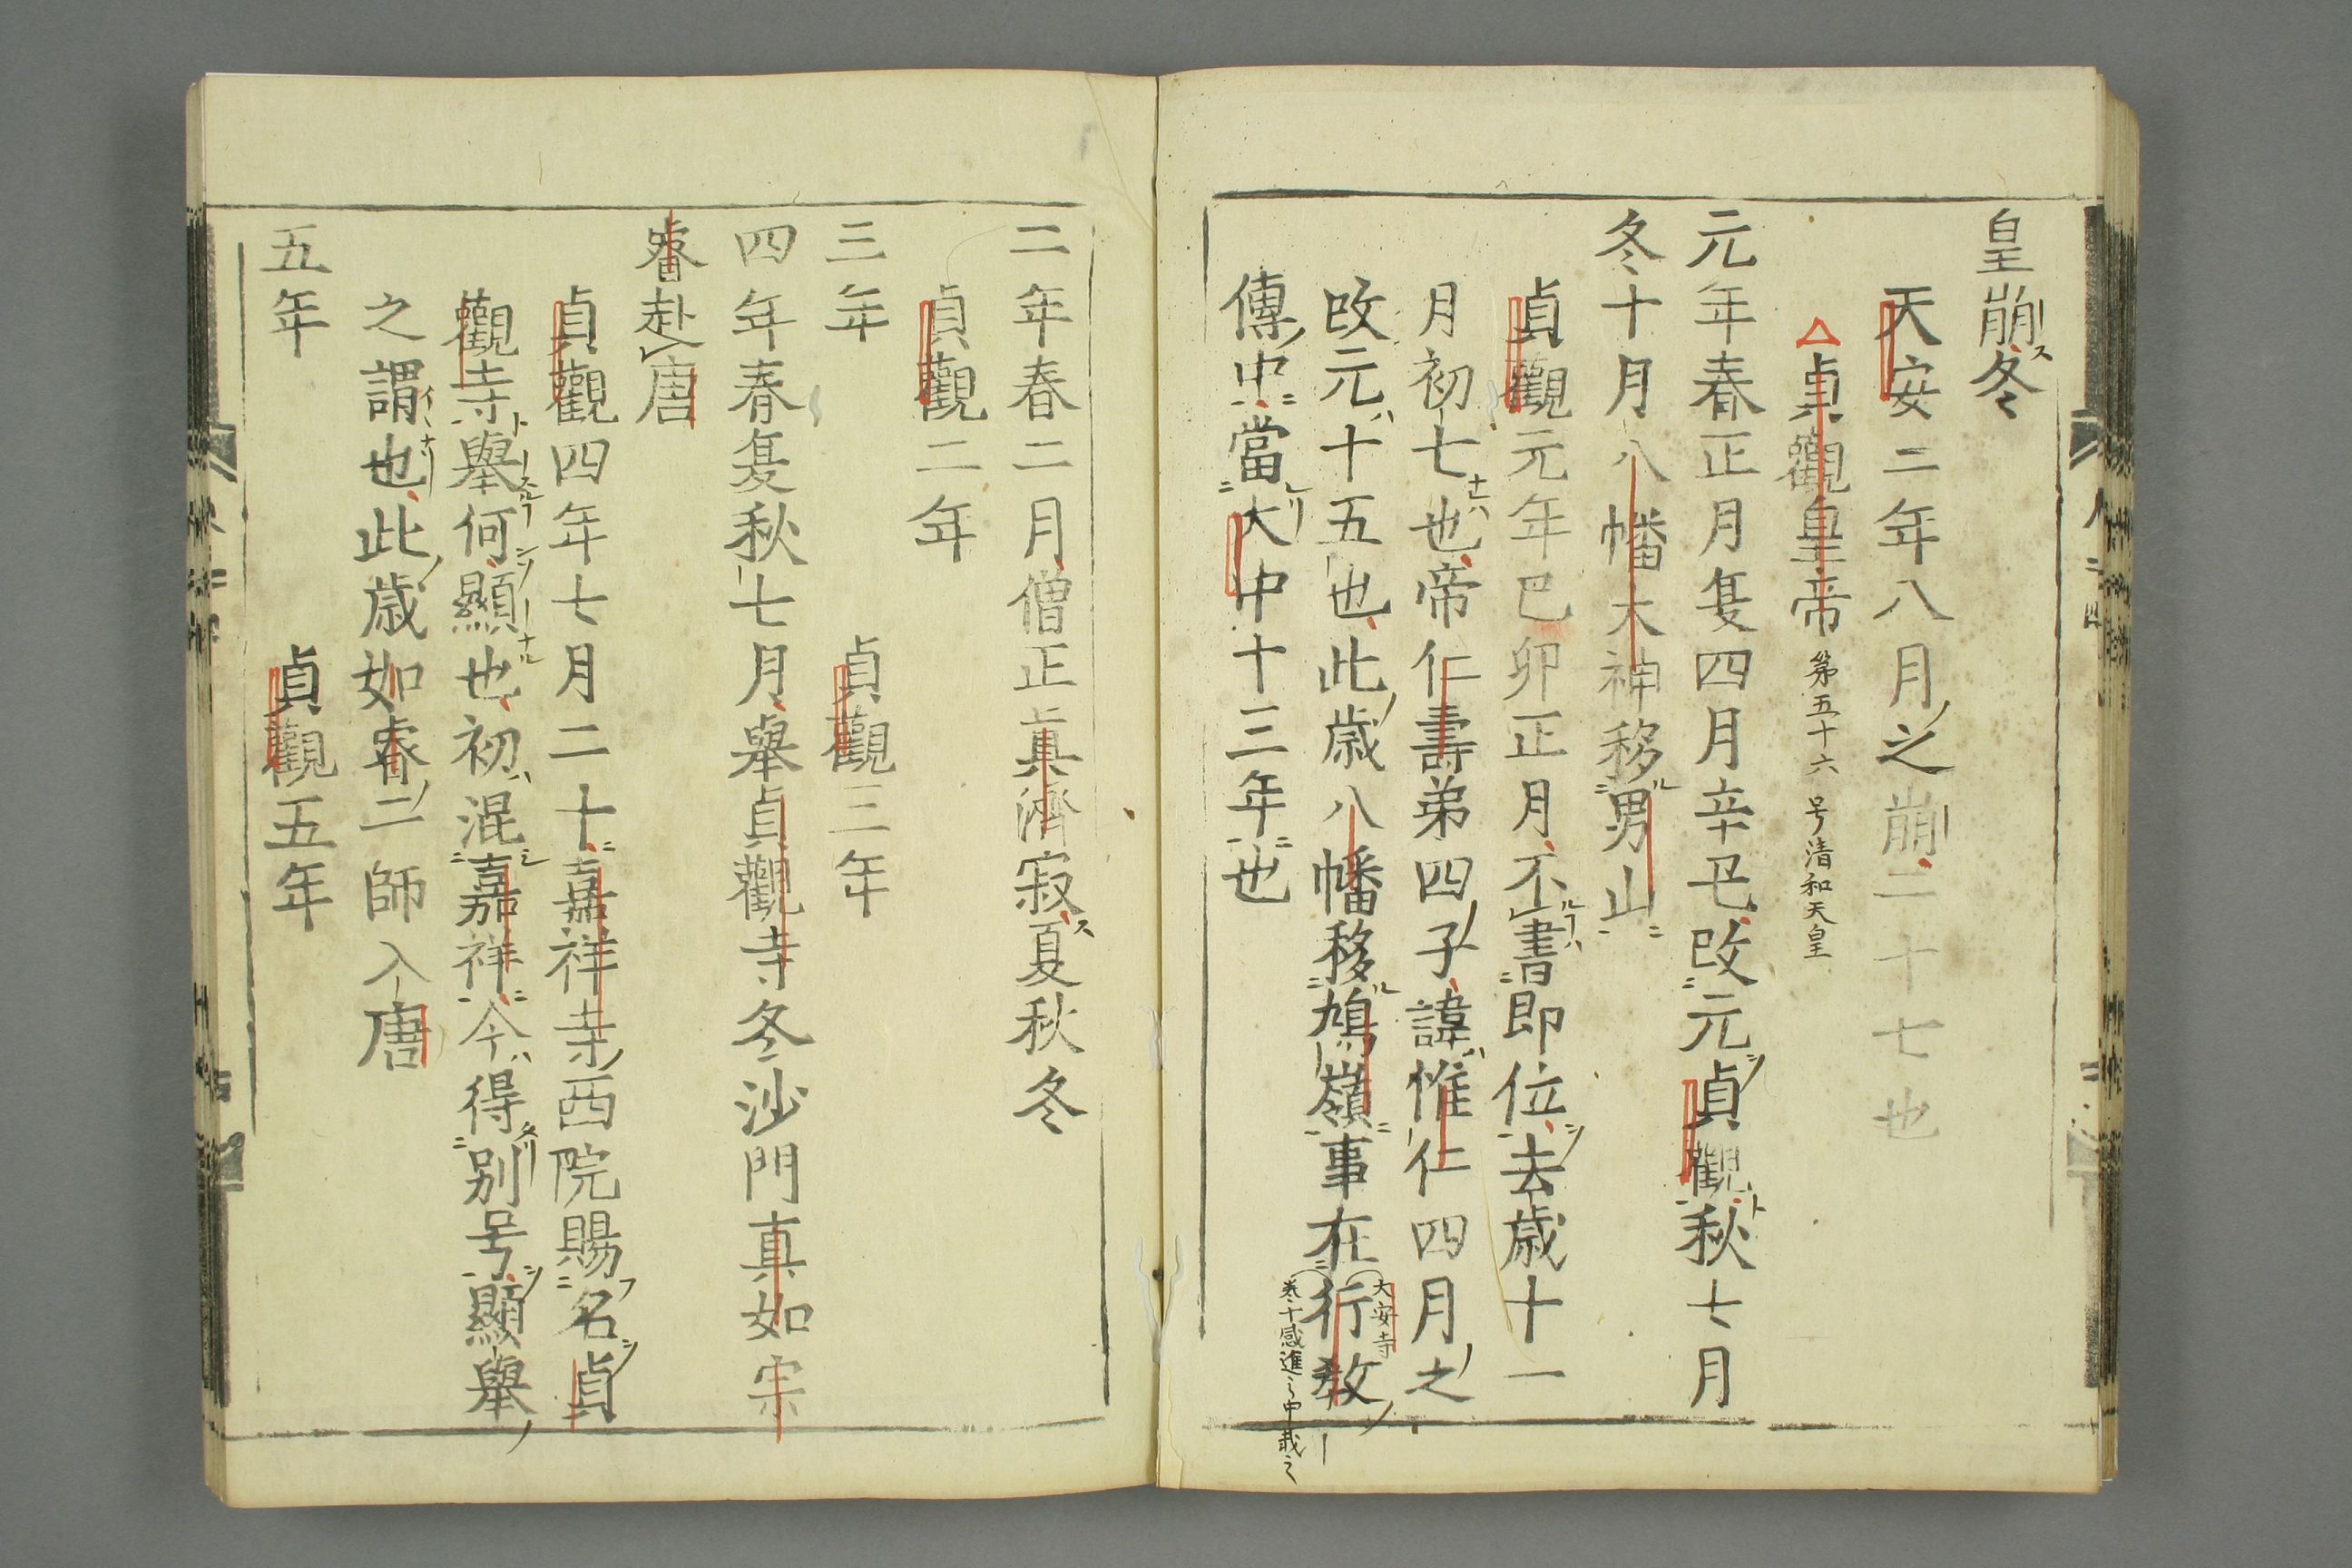 皇崩冬
天安二年八月之崩二十七也
貞觀皇帝 第五十六 号清和天皇
元年春正月夏四月辛卯改元貞觀秋七月
冬十月八幡大神移男山
貞觀元年巳卯正月不書即位去歳十一
月初七也帝仁壽弟四子諱惟仁四月之
改元十五也此歳八幡移鳩嶺事在行教
大安寺
卷十感進之中載之
傳中當大中十三年也
二年春二月僧正真濟寂夏秋冬
貞觀二年
三年 貞觀三年
四年春夏秋七月舉貞觀寺冬沙門真如宗
睿赴唐
貞觀四年七月二十嘉祥寺西院賜名貞
觀寺舉何顯也初混嘉祥今得別号顯舉
之謂也此歳如睿二師入唐
五年 貞觀五年